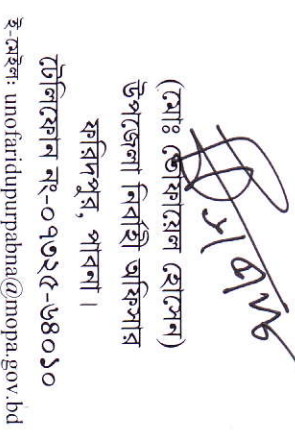 (মোঃ তোফায়েল হোসেন)
উপজেলা নির্বাহী অফিসার
ফরিদপুর, পাবনা।
টেলিফোন নং-০৭৩২৫-৬৪০১০
ই-মেইল: unofaridupurpabna@mopa.gov.bd